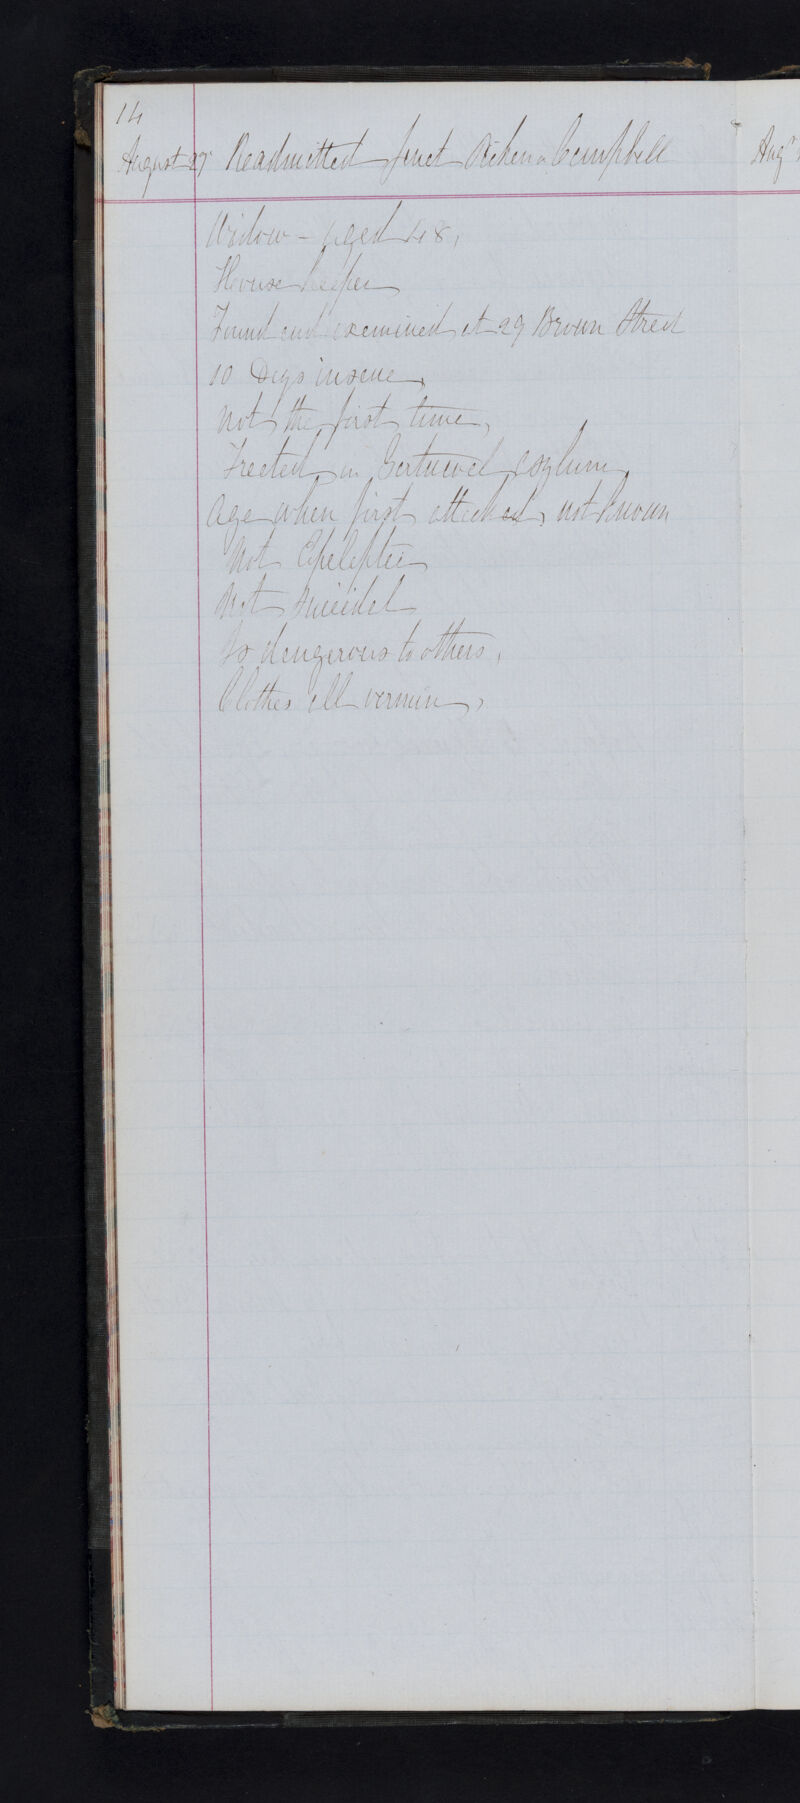 14
August 27 Readmitted Janet Aiken or Campbell
Widow - Aged 48,
House keeper
Found and examined at 29 Brown Street
10 Days insane,
Not the first time,
Treated in Gartnavel asylum
Age when first attacked, not known
Not Epeleptic
Not Suicidal
Is dangerous to others,
Clothes all vermin,
Augt